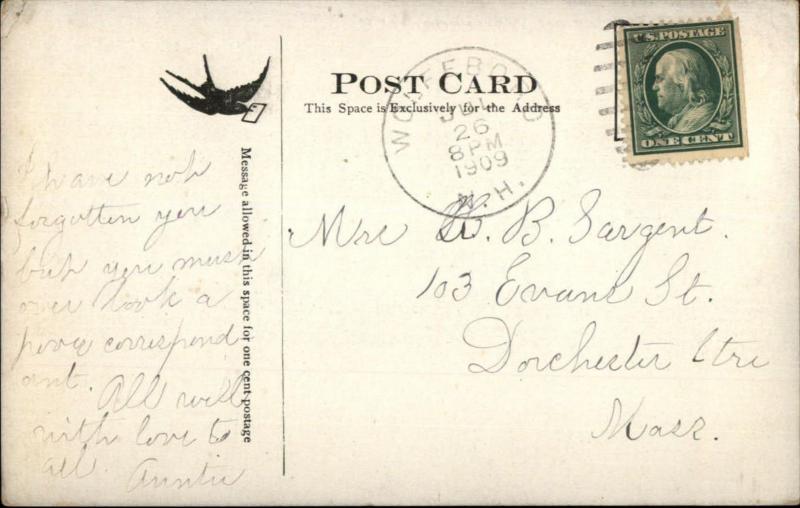 POST CARD
This Space is Exclusively for the Address
U.S. POSTAGE
ONE CENT
WOLFEBORO
JUL
26
8 PM
1909
N. H.
Message allowed in this space for one cent postage
I have not
forgotten you
but you must
over look a
poor correspond
ant.
All well
with love to
all.
Auntie
Mrs W. B. Sargent.
103 Evans St.
Dorchester Ctre
Mass.